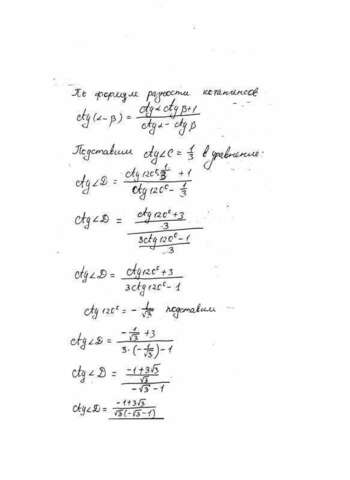 По формуле разности котангенсов
ctg(α-β) = (ctgα ctgβ+1)/(ctgα - ctgβ)
Подставим ctg∠C = 1/3 в уравнение:
ctg∠D = (ctg120° 1/3 + 1)/(ctg120° - 1/3)
ctg∠D = ((ctg120°+3)/3)/((3ctg120°-1)/3)
ctg∠D = (ctg120°+3)/(3ctg120°-1)
ctg120° = -1/√3 подставим
ctg∠D = (-1/√3 +3)/(3·(-1/√3)-1)
ctg∠D = ((-1+3√3)/√3)/(-√3-1)
ctg∠D = (-1+3√3)/(√3(-√3-1))